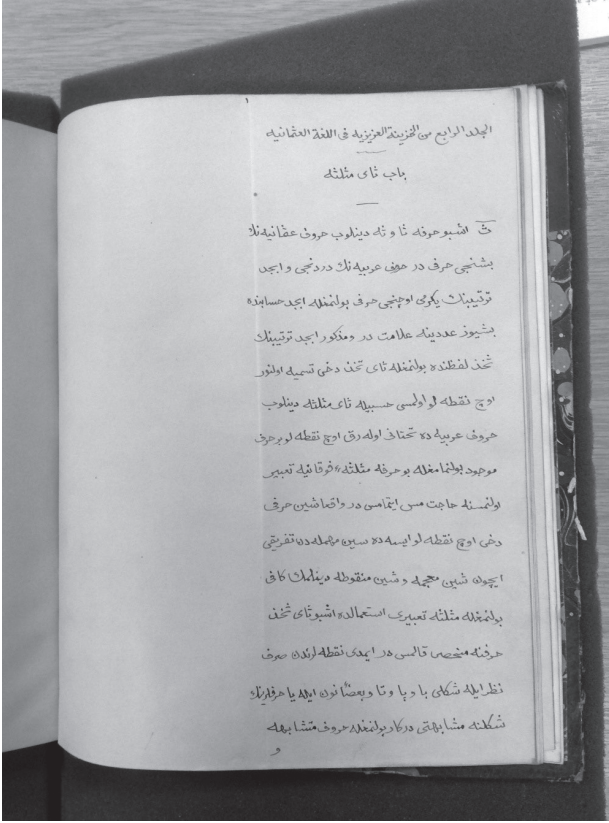 ١
الجلد الرابع من الخزينة العزيزيه فى اللغة العثمانيه
باب ثاى مثلثه
ث اشبو حرفه ثا و ثه دينلوب حروف عثمانيه نك
بشنجى حرفى در حروف عربيه نك دردنجى و ابجد
ترتيبنك يكرمى اوچنجى حرفى بولنمغله ابجد حسابنده
بشيوز عددينه علامت در ومذكور ابجد ترتيبنك
ثخذ لفظنده بولنمغله ثاى ثخذ دخى تسميه اولنور
اوچ نقطه لو اولمسى حسبيله ثاى مثلثه دينلوب
حروف عربيه ده تحتانى اوله رق اوچ نقطه لو بر حرف
موجود بولنمامغله بو حرفه مثلثهٔ فوقانيه تعبير
اولنمسنه حاجت مس ايتمامس در واقعا شين حرفى
دخى اوچ نقطه لو ايسه ده سين مهمله دن تفريقى
ايچون شين معجمه و شين منقوطه دينلمك كافى
بولنمغله مثلثه تعبيرى استعمالده اشبو ثاى ثخذ
حرفنه منحصر قالمس در ايمدى نقطه لرندن صرف
نظرايله شكلى با و پا و تا و بعضًا نون ايله يا حرفلرينك
شكلنه مشابهتى دركار بولنمغله حروف متشابهه
و